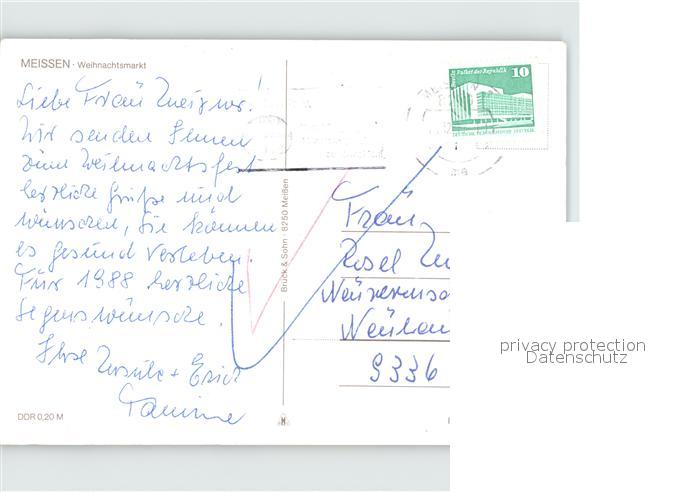 MEISSEN · Weihnachtsmarkt
Liebe Frau
Wir senden Ihnen
zum Weihnachtsfest
herzliche Grüße und
wünschen, Sie können
es gesund verleben.
Für 1988 herzliche
Segenswünsche.
Ihre Ursula + Erich
DDR 0,20 M
Brück & Sohn · 8250 Meißen
Palast der Republik 10
Frau
Rosel
9336
privacy protection
Datenschutz